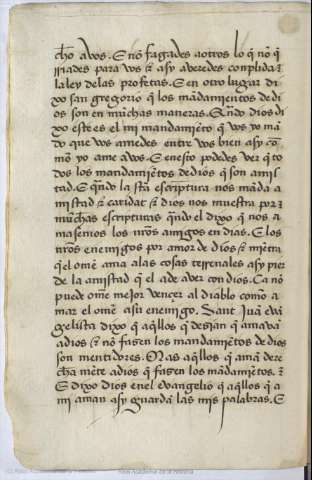 cho avos. E nõ fagades aotros lo q̃ nõ q̃
rriades para vos ⁊ asy averedes conplida
la ley delas profetas. E en otro lugar di
xo san gregorio q̃ los mãdamientos de di
os son en muchas maneras. Q̃ndo dios di
xo este es el mi mandamiẽto q̃ vos yo mã
do que vos amedes entre vos bien asy co
mo yo ame avos. E en esto podedes ver q̃ to
dos los mandamiẽtos de dios q̃ son amis
tad. E q̃ndo la sãta escriptura nos mãda a
mistad ⁊ caridat ⁊ dios nos muestra por
muchas escripturas q̃ndo el dixo q̃ nos a
masemos los nr̃os amigos en dias. E los
nr̃os enemigos por amor de dios ⁊ miẽtra
q̃ el ome ama alas cosas terrenales asy pier
de la amistad q̃ el ade aver con dios. Ca nõ
puede ome mejor vençer al diablo como a
mar el ome asu enemigo. Sant Juã evã
gelista dixo q̃ aq̃llos q̃ desian q̃ amavã
adios ⁊ nõ fasen los mandamiẽtos de dios
son mentidores. Mas aq̃llos q̃ amã dere
cha mẽte adios q̃ fasen los mãdamiẽtos.
E dixo dios enel evangelio q̃ aq̃llos q̃ a
mi aman asy guardã las mis palabras. E
Real Academia de la Historia